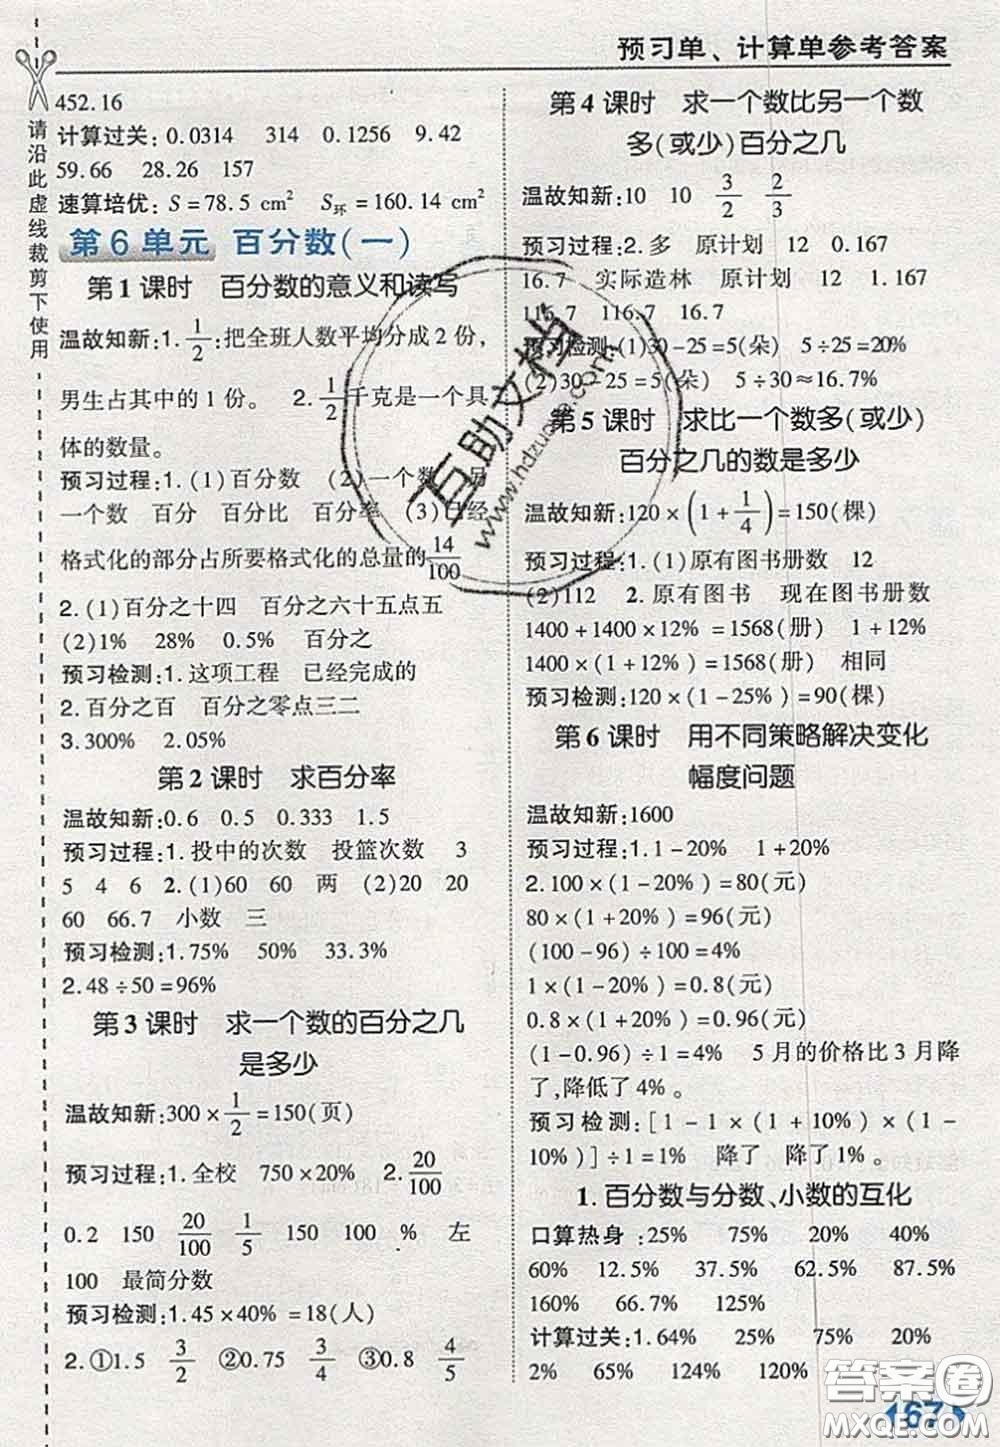 预习单、计算单参考答案
请沿此虚线裁剪下使用
452.16
计算过关:0.0314 314 0.1256 9.42
59.66 28.26 157
速算培优:S=78.5 cm² S环=160.14 cm²
第6单元 百分数(一)
第1课时 百分数的意义和读写
温故知新:1. 1/2:把全班人数平均分成2份,
男生占其中的1份。 2. 1/2千克是一个具
体的数量。
预习过程:1.(1)百分数 (2)一个数 另
一个数 百分 百分比 百分率 (3)已经
格式化的部分占所要格式化的总量的14/100
2.(1)百分之十四 百分之六十五点五
(2)1% 28% 0.5% 百分之
预习检测:1.这项工程 已经完成的
2.百分之百 百分之零点三二
3.300% 2.05%
第2课时 求百分率
温故知新:0.6 0.5 0.333 1.5
预习过程:1.投中的次数 投篮次数 3
5 4 6 2.(1)60 60 两 (2)20 20
60 66.7 小数 三
预习检测:1.75% 50% 33.3%
2.48÷50=96%
第3课时 求一个数的百分之几
是多少
温故知新:300×1/2=150(页)
预习过程:1.全校 750×20% 2. 20/100
0.2 150 20/100 1/5 150 100 % 左
100 最简分数
预习检测:1.45×40%=18(人)
2.①1.5 3/2 ②0.75 3/4 ③0.8 4/5
第4课时 求一个数比另一个数
多(或少)百分之几
温故知新:10 10 3/2 2/3
预习过程:2.多 原计划 12 0.167
16.7 实际造林 原计划 12 1.167
116.7 116.7 16.7
预习检测:(1)30-25=5(朵) 5÷25=20%
(2)30-25=5(朵) 5÷30≈16.7%
第5课时 求比一个数多(或少)
百分之几的数是多少
温故知新:120×(1+1/4)=150(棵)
预习过程:1.(1)原有图书册数 12
(2)112 2.原有图书 现在图书册数
1400+1400×12%=1568(册) 1+12%
1400×(1+12%)=1568(册) 相同
预习检测:120×(1-25%)=90(棵)
第6课时 用不同策略解决变化
幅度问题
温故知新:1600
预习过程:1.1-20% 1+20%
2.100×(1-20%)=80(元)
80×(1+20%)=96(元)
(100-96)÷100=4%
1×(1-20%)=0.8(元)
0.8×(1+20%)=0.96(元)
(1-0.96)÷1=4% 5月的价格比3月降
了,降低了4%。
预习检测:[1-1×(1+10%)×(1-
10%)]÷1=1% 降了 降了1%。
1.百分数与分数、小数的互化
口算热身:25% 75% 20% 40%
60% 12.5% 37.5% 62.5% 87.5%
160% 66.7% 125%
计算过关:1.64% 25% 75% 20%
2% 65% 124% 120%
167
互助文档
www.hdzuoye.com
答案圈
MXQE.COM